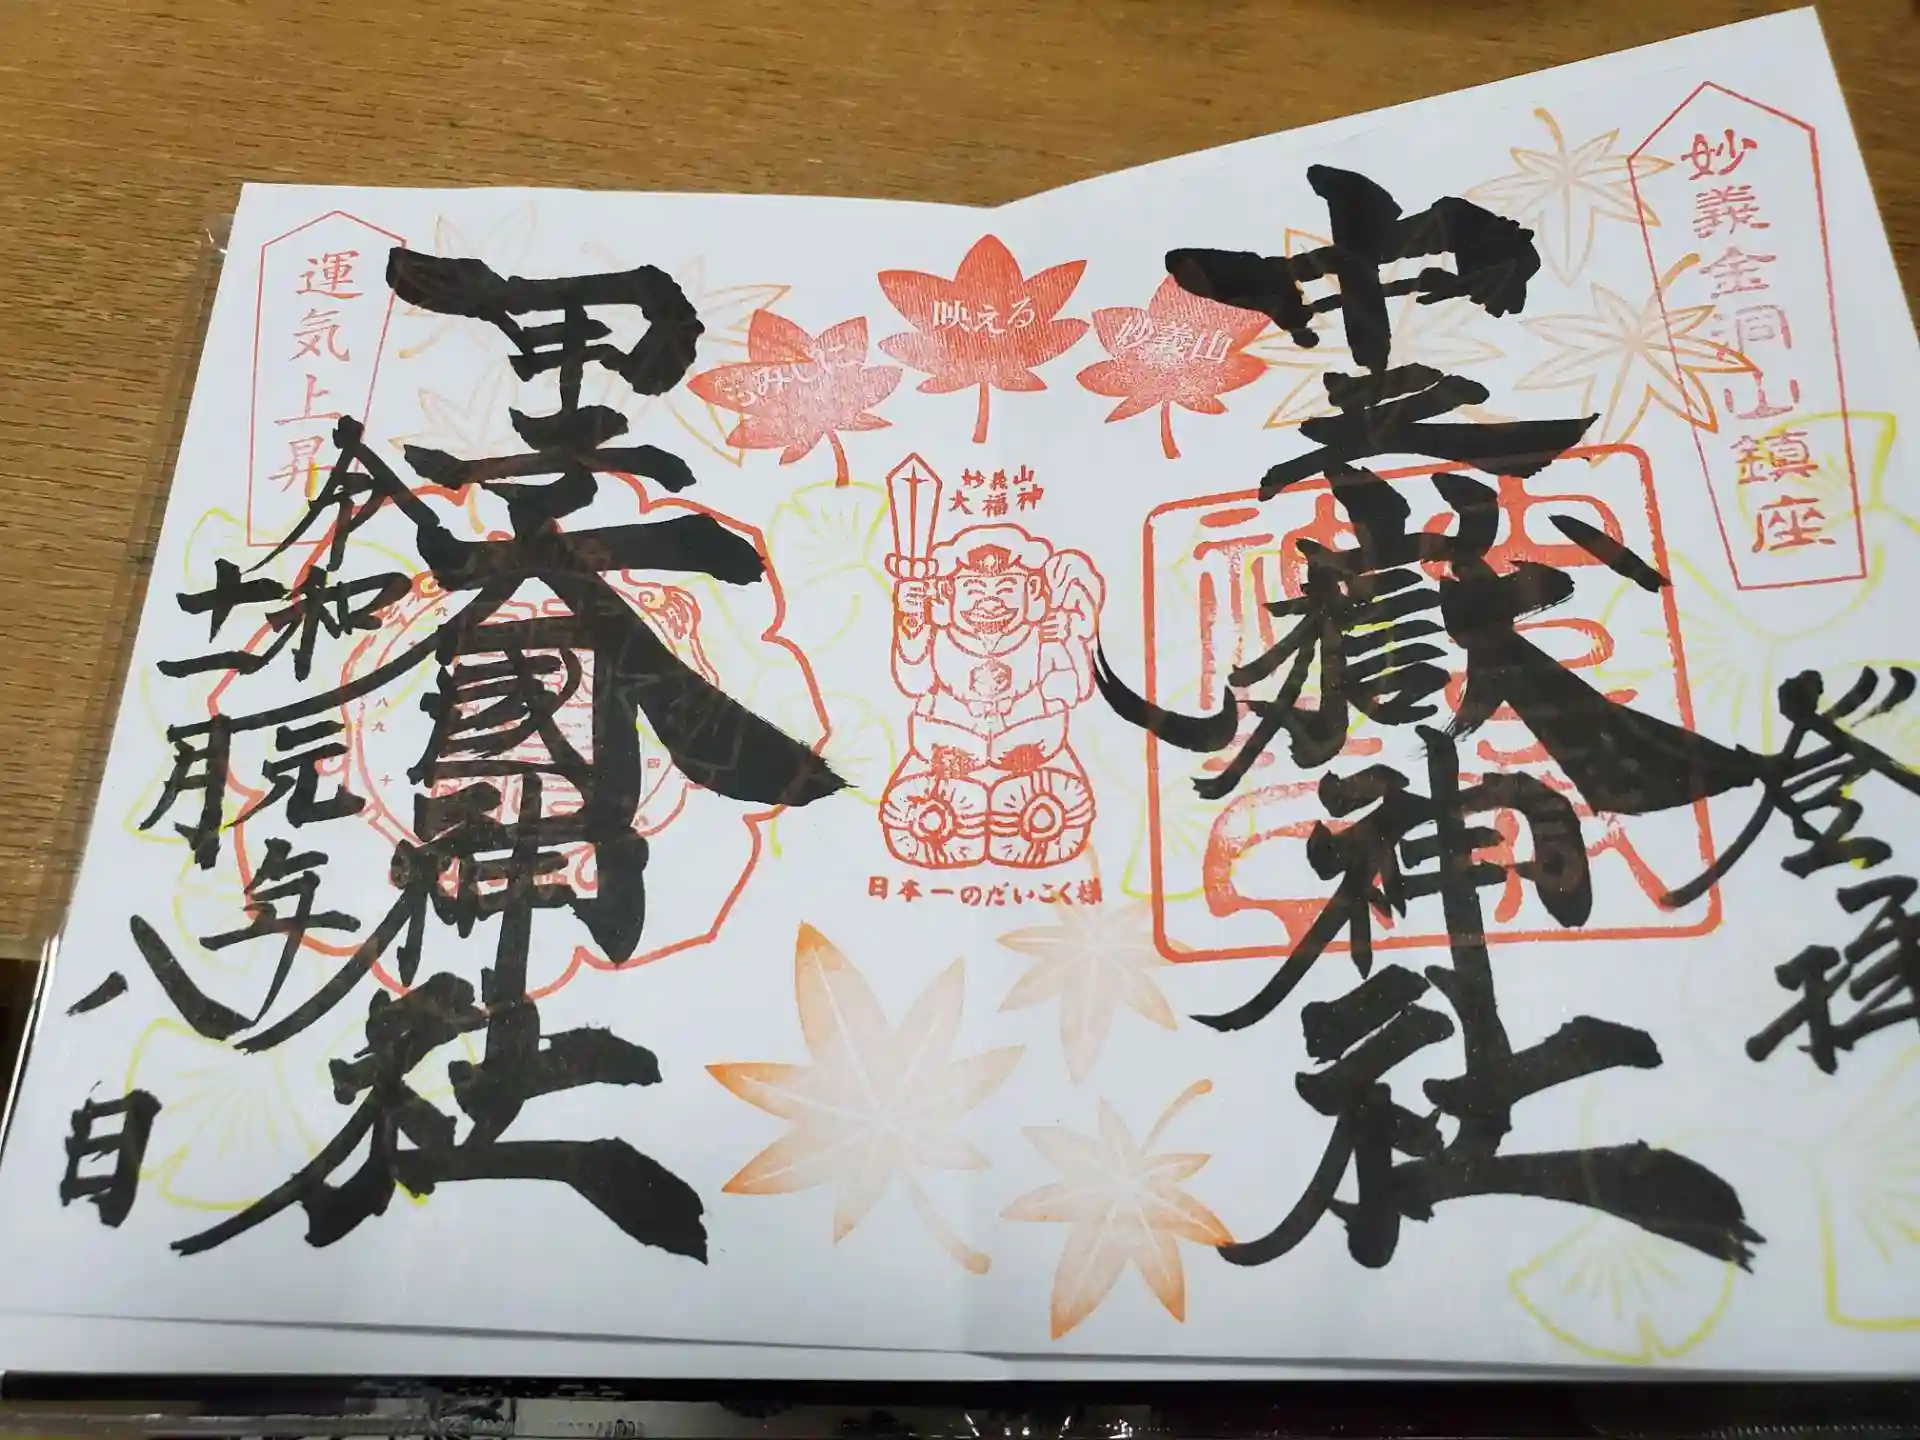 妙義金洞山鎮座
登拝
中之嶽神社
妙義山
映える
もみじに
妙義山
大福神
日本一のだいこく様
甲子大國神社
運気上昇
令和元年
十一月八日